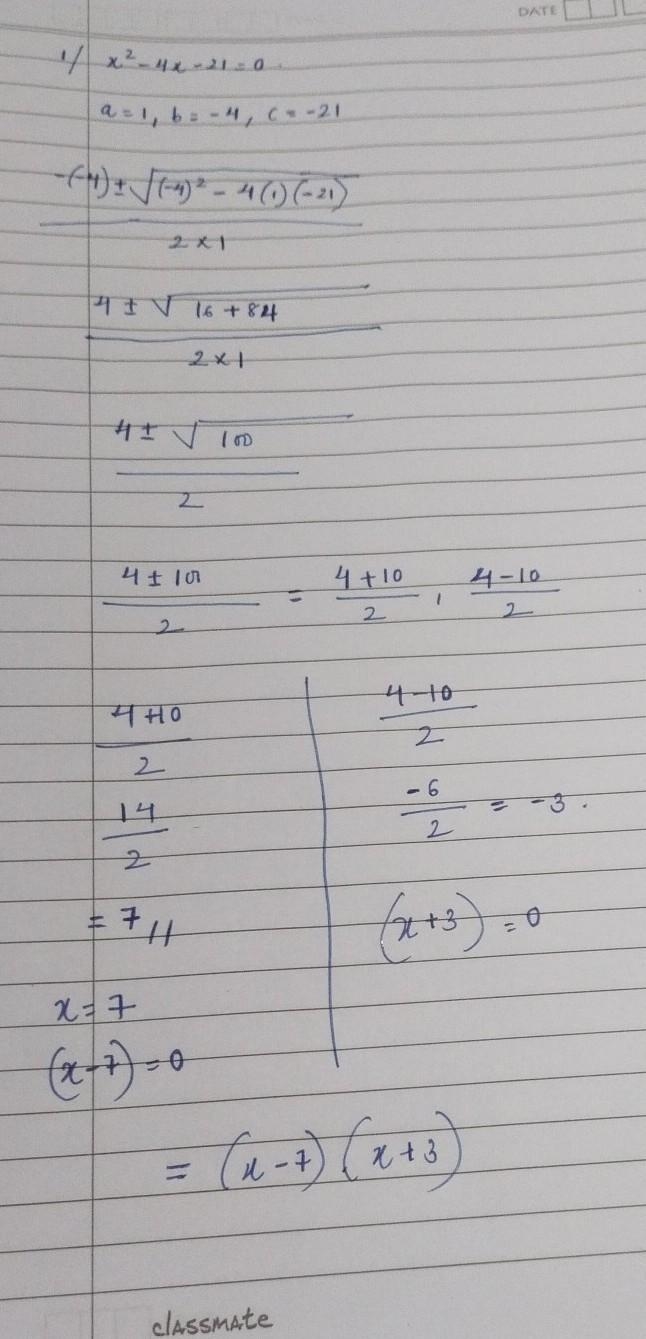 DATE
1/ x² - 4x - 21 = 0.
a = 1, b = -4, c = -21
-(-4) ± √(-4)² - 4(1)(-21)
2 × 1
4 ± √16 + 84
2 × 1
4 ± √100
2
4 ± 10 = 4 + 10 , 4 - 10
2 2 2
4 + 10
2
14
2
= 7 //
x = 7
(x - 7) = 0
4 - 10
2
-6 = -3.
2
(x + 3) = 0
= (x - 7) (x + 3)
classmate